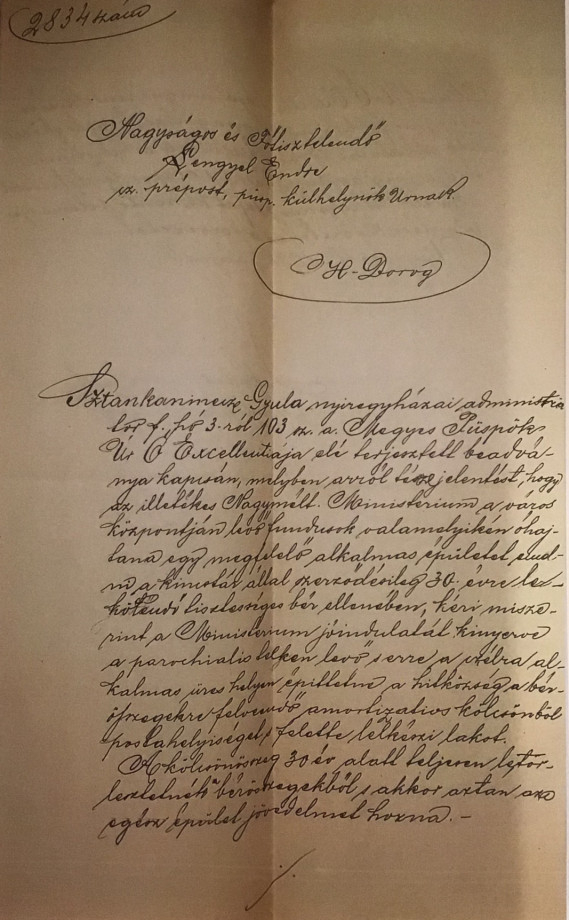 2834 szám
Nagyságos és Főtisztelendő
Lengyel Endre
cz. prépost, püsp. külhelynök Urnak.
H-Dorog
Sztankaninecz Gyula nyiregyházai administra
tor f. hó 3-ról 103 sz. a. Megyés Püspök
Úr Ő Excellentiája elé terjesztett beadvá-
nya kapcsán, melyben arról tész jelentést, hogy
az illetékes Nagymélt. Ministerium a város
központján levő fundusok valamelyikén óhaj-
tana egy megfelelő alkalmas épületet
a kincstár által szerződésileg 30 évre le-
kötendő tisztességes bér ellenében, kéri misze-
rint a Ministerium jóindulatát kinyerve
a parochialis telken levő s erre a czélra al-
kalmas üres helyen építtetne a hitközség a bér-
öszegekre felveendő amortizatios kölcsönből
postahelyiséget, s felette lelkészi lakot.
A kölcsönöszeg 30 év alatt teljesen letör-
lesztetnék a béröszegekből s akkor aztan az
egész épület jövedelmet hozna. -
./.